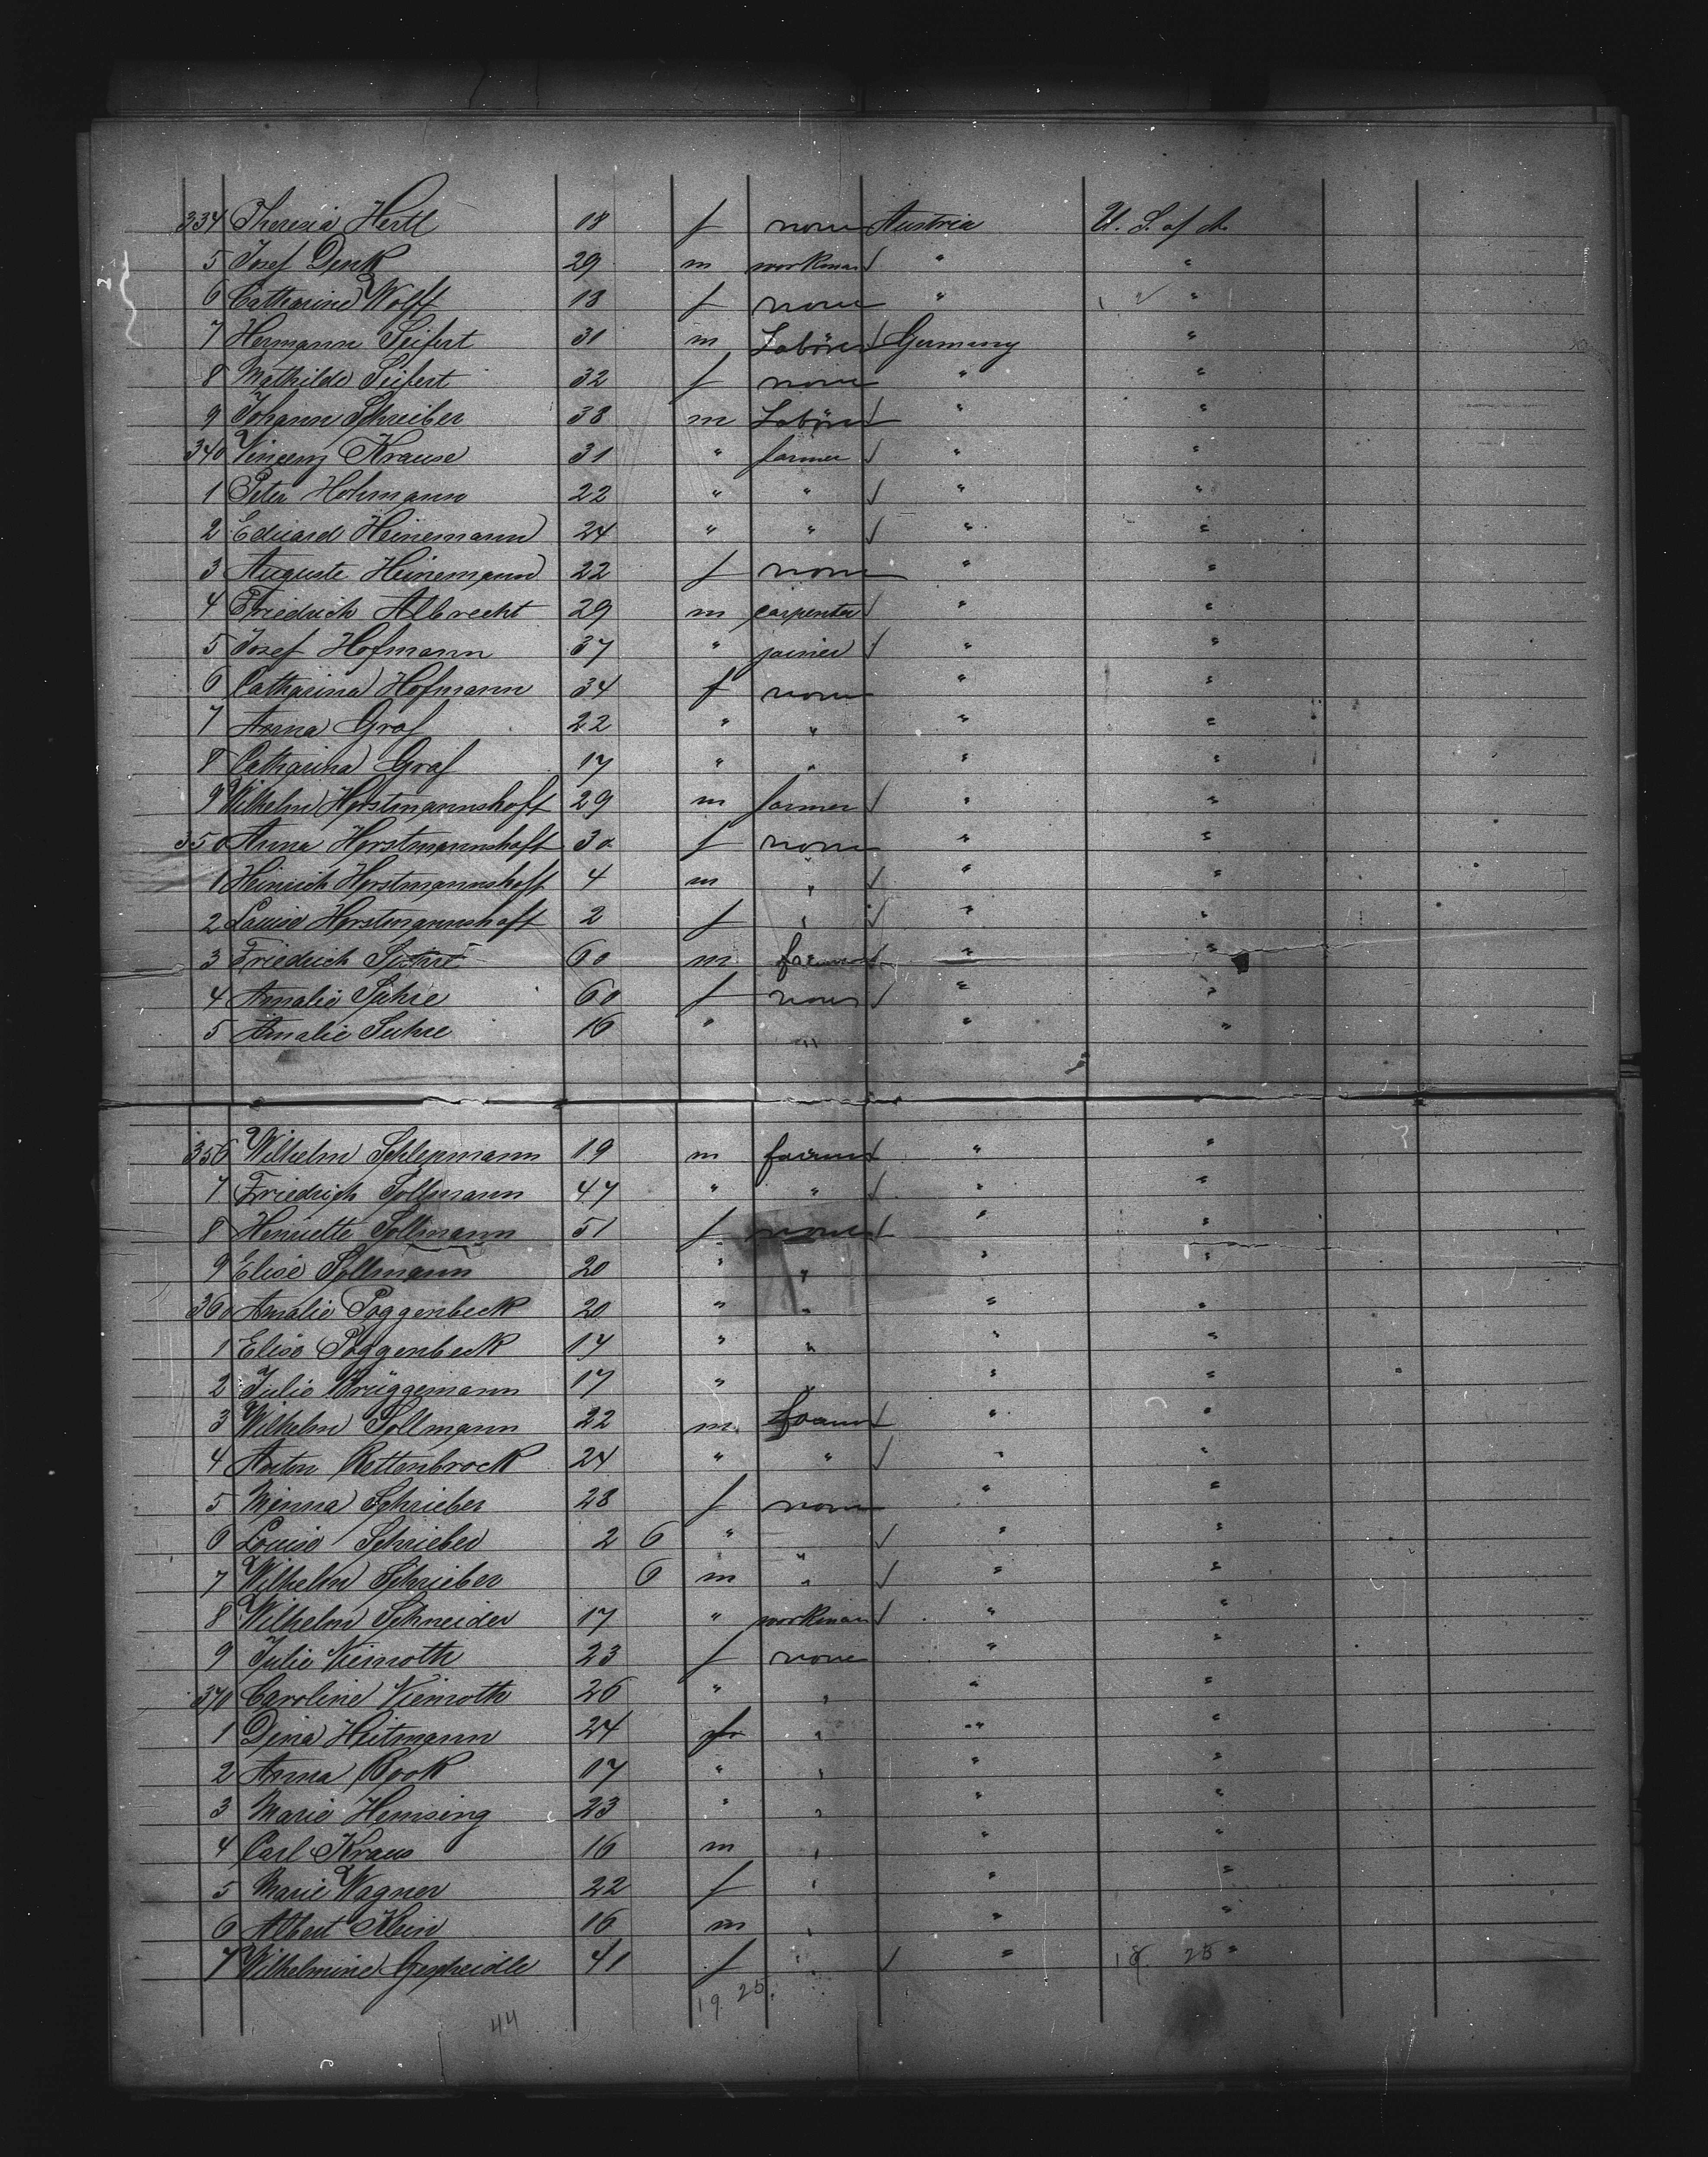 334 Theresia Hertl 18 f none Austria U. S. of A.
5 Josef Denk 29 m workman ✓ " "
6 Catharine Wolff 18 f none " "
7 Hermann Seifert 31 m Laborer ✓ Germany "
8 Mathilde Seifert 32 f none " "
9 Johann Schreiber 38 m Laborer ✓ " "
340 Vincenz Krause 31 " farmer ✓ " "
1 Peter Hohmann 22 " " ✓ " "
2 Eduard Heinemann 24 " " ✓ " "
3 Auguste Heinemann 22 f none " "
4 Friedrich Albrecht 29 m carpenter ✓ " "
5 Josef Hofmann 37 " joiner ✓ " "
6 Catharina Hofmann 34 f none " "
7 Anna Graf 22 " " " "
8 Catharina Graf 17 " " " "
9 Wilhelm Horstmannshoff 29 m farmer ✓ " "
350 Anna Horstmannshoff 30 f none " "
1 Heinrich Horstmannshoff 4 m " ✓ " "
2 Louise Horstmannshoff 2 f " ✓ " "
3 Friedrich Suhre 60 m farmer ✓ " "
4 Amalie Suhre 60 f none ✓ " "
5 Amalie Suhre 16 " " " "
356 Wilhelm Schlepmann 19 m farmer ✓ " "
7 Friedrich Sollmann 47 " " ✓ " "
8 Henriette Sollmann 51 f none ✓ " "
9 Elise Sollmann 20 " " " "
360 Amalie Poggenbeck 20 " " " "
1 Elise Poggenbeck 17 " " " "
2 Julie Brüggemann 17 " " " "
3 Wilhelm Sollmann 22 m farmer ✓ " "
4 Anton Rettenbrock 24 " " ✓ " "
5 Minna Schrieber 28 f none " "
6 Louise Schrieber 2 6 " " ✓ " "
7 Wilhelm Schrieber 6 m " ✓ " "
8 Wilhelm Schneider 17 " workman ✓ " "
9 Julie Niemoth 23 f none " "
370 Caroline Niemoth 26 " " " "
1 Dina Heitmann 24 f " " "
2 Anna Rook 17 " " " "
3 Marie Hemsing 23 " " " "
4 Carl Kraus 16 m " " "
5 Marie Wagner 22 f " " "
6 Albert Klein 16 m " " "
7 Wilhelmine 41 f " ✓ " 18 25 "
19 25
44